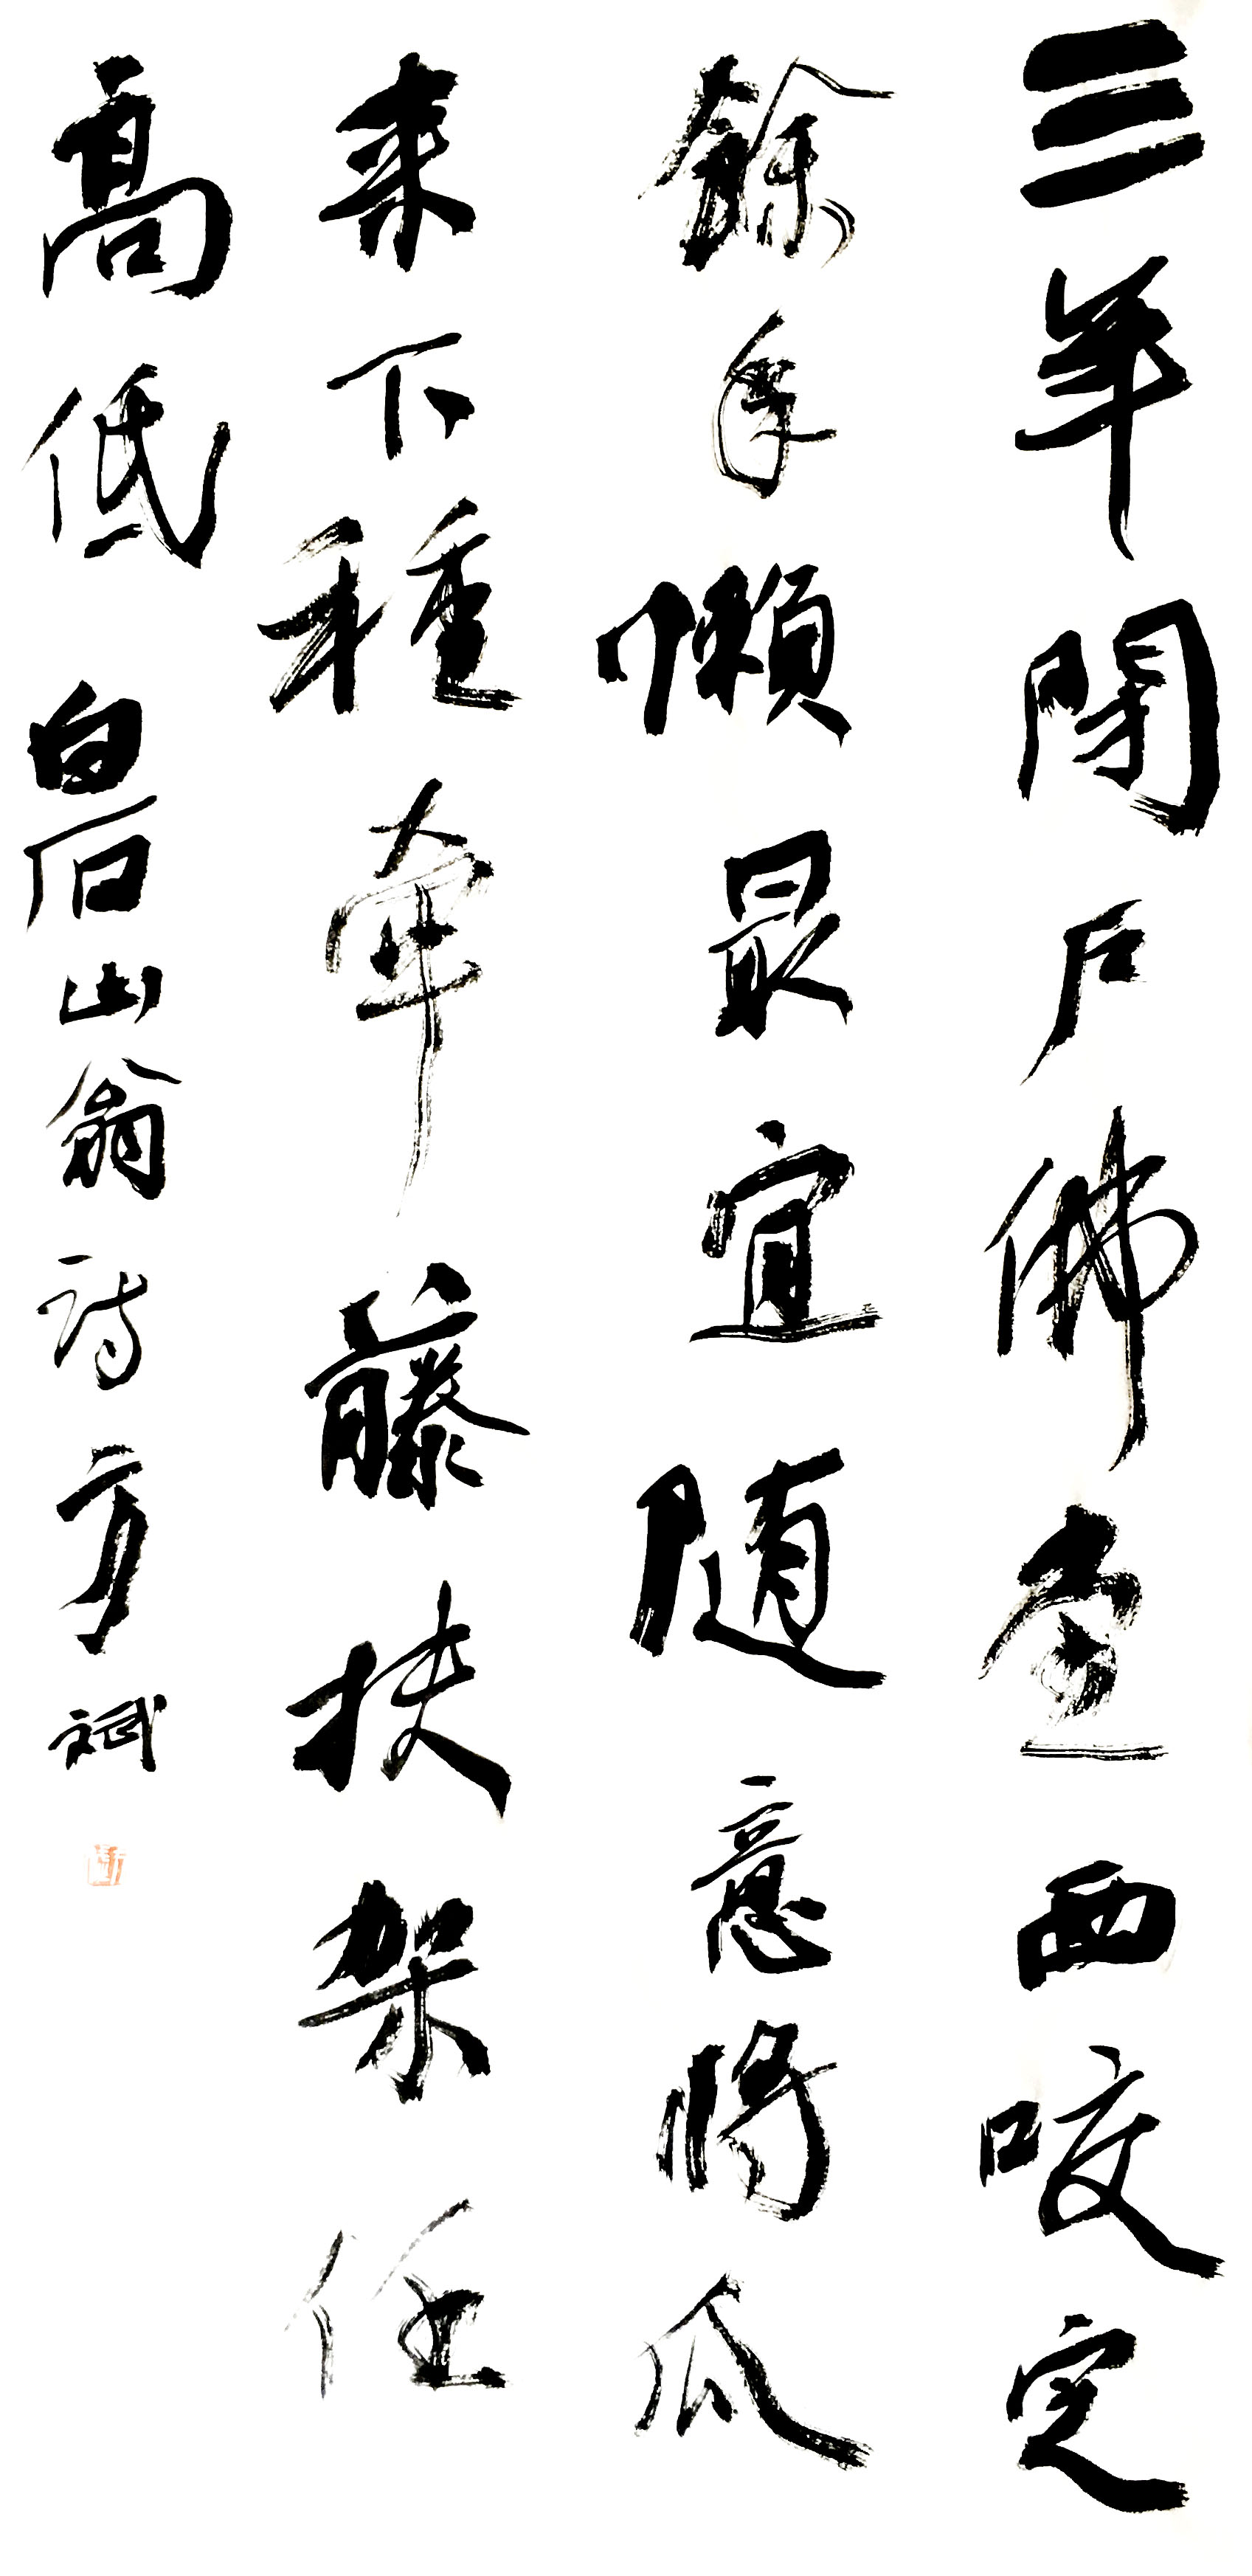 三年閉戶佛堂西咬定
餘年懶最宜随意將瓜
来下種牽藤扶架任
高低 白石山翁詩方斌